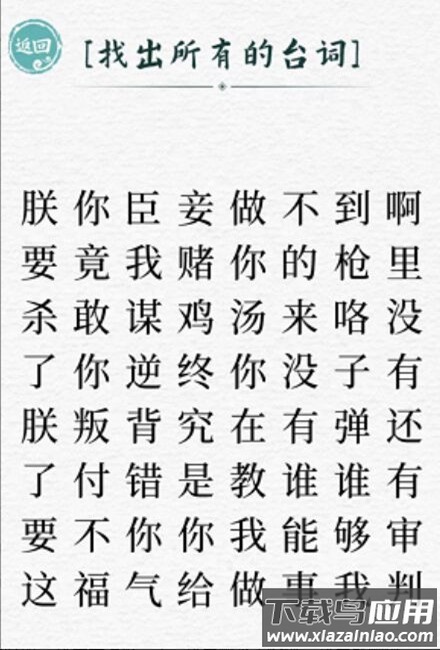 返回
[找出所有的台词]
朕你臣妾做不到啊
要竟我赌你的枪里
杀敢谋鸡汤来咯没
了你逆终你没子有
朕叛背究在有弹还
了付错是教谁谁有
要不你你我能够审
这福气给做事我判
下载鸟应用
www.xiazainiao.com